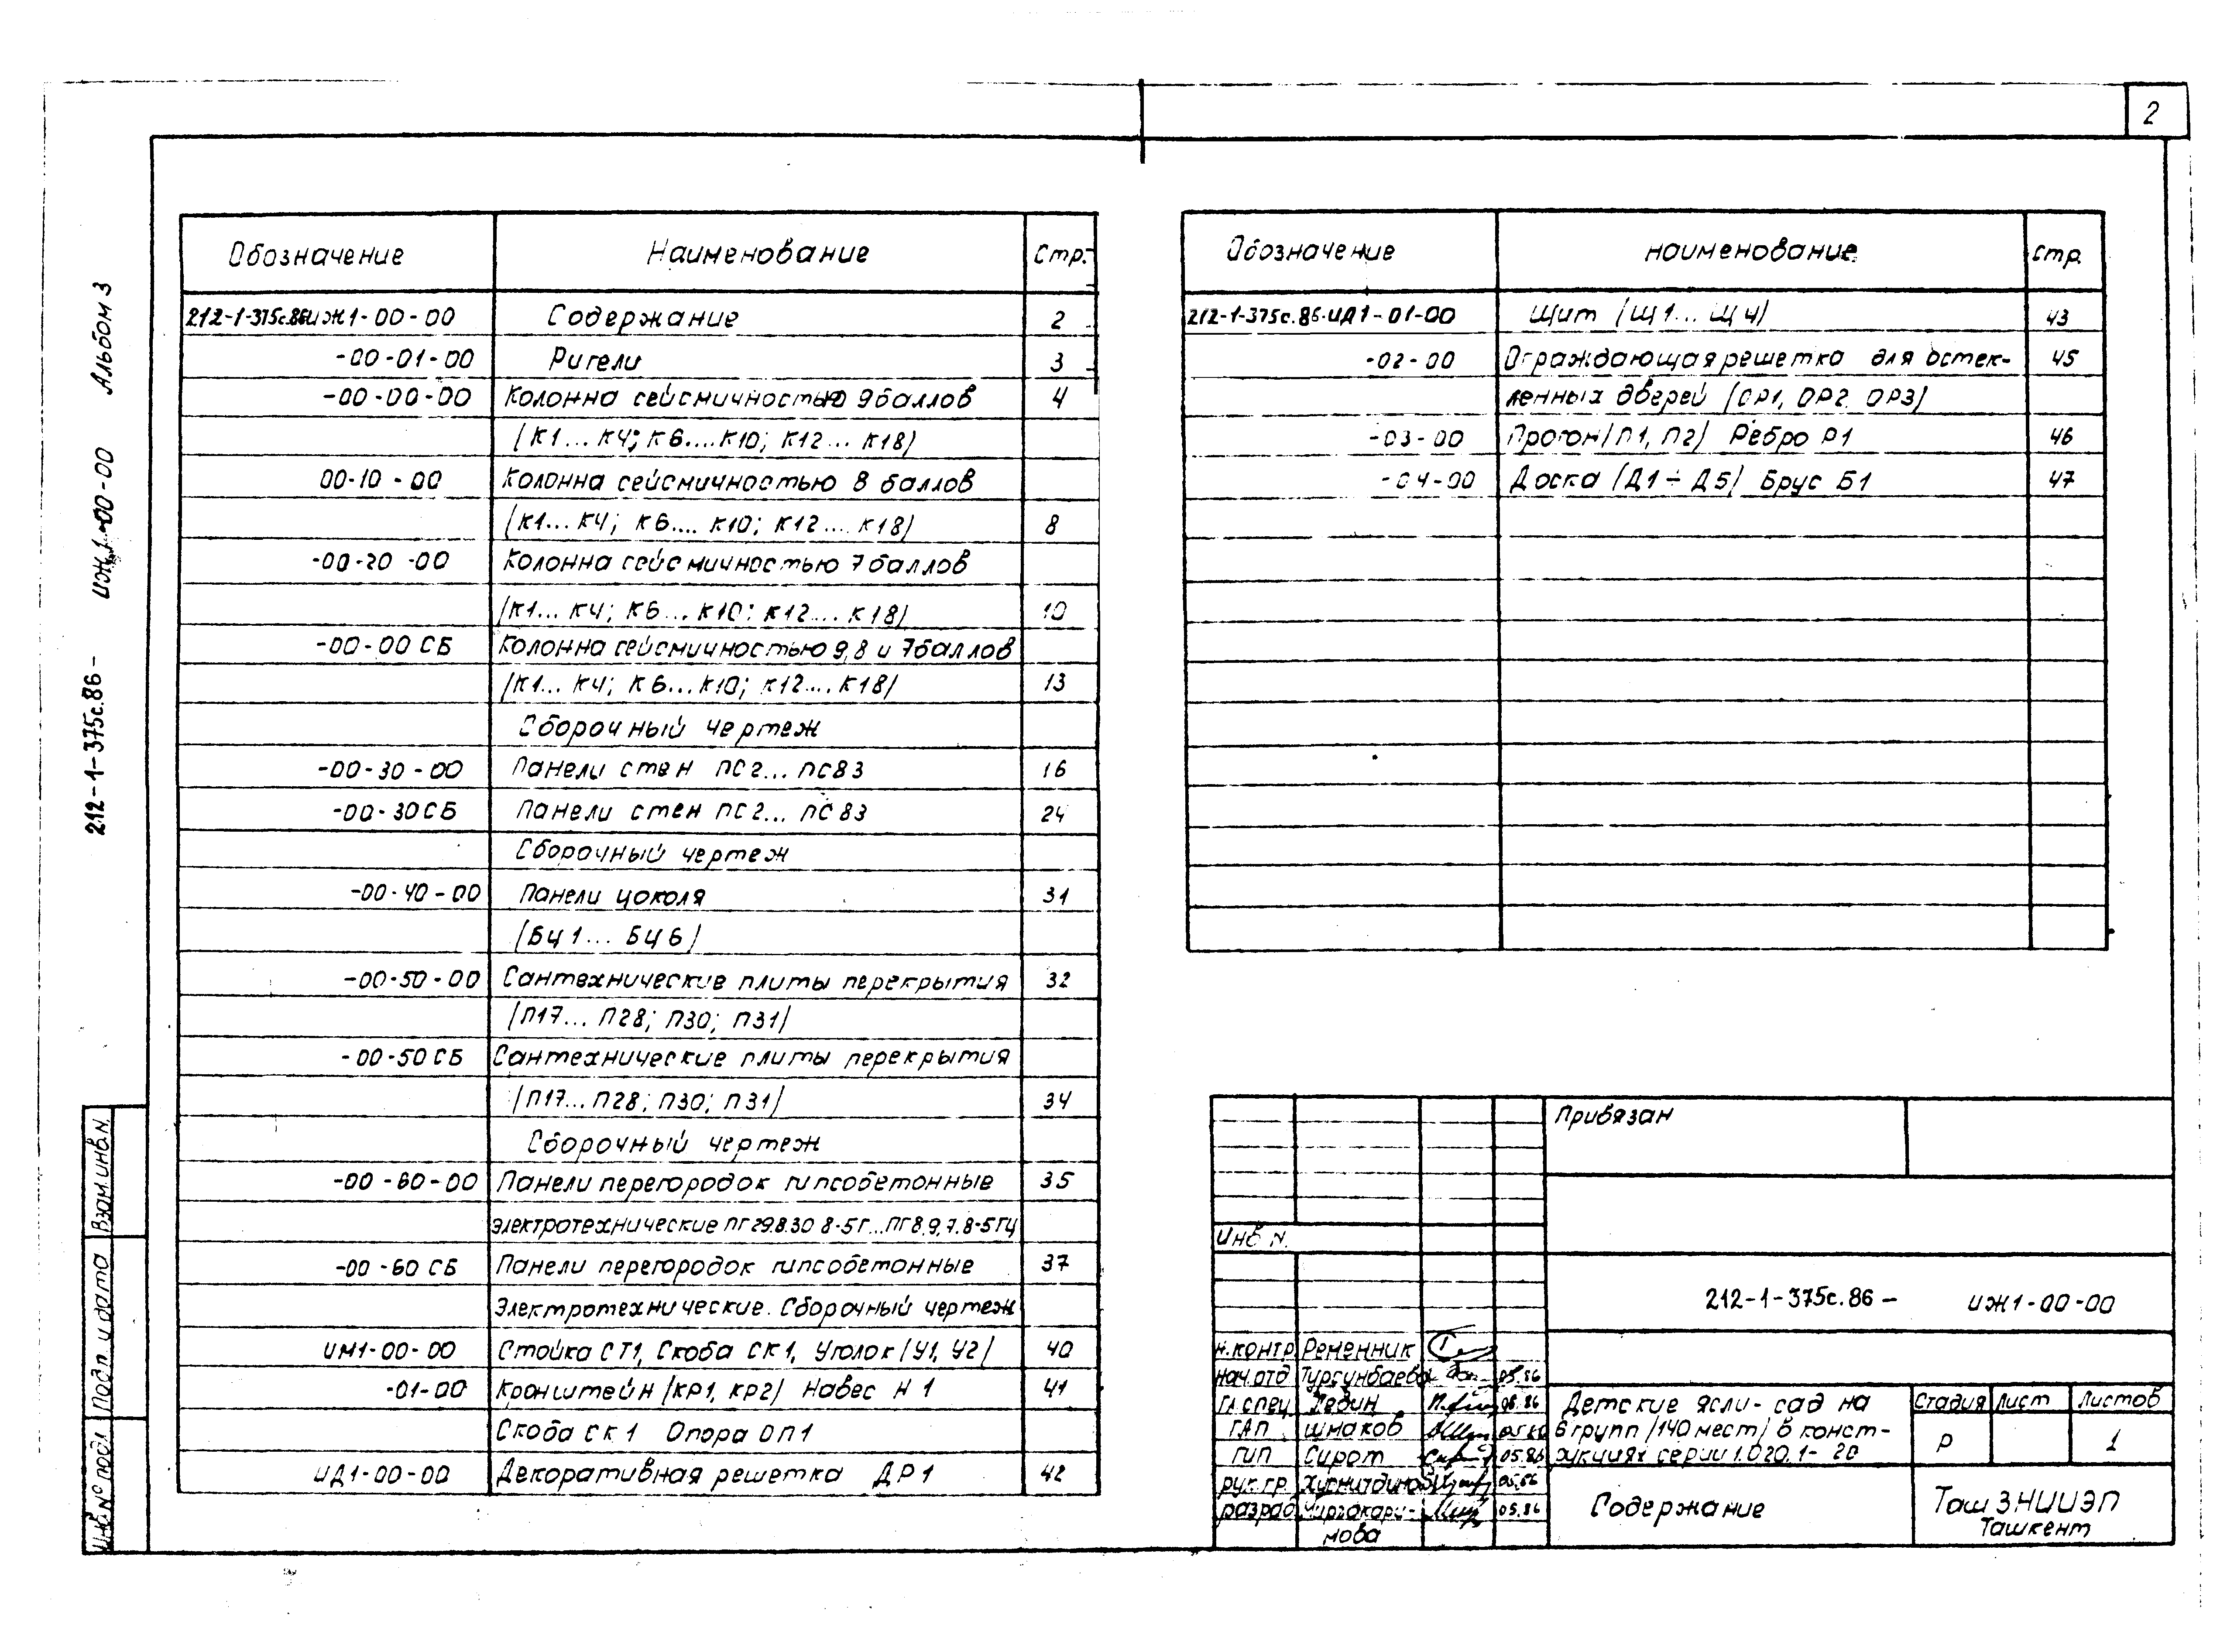 2
212-1-375с.86- ИЖ1-00-00 Альбом 3
Обозначение Наименование Стр.
212-1-375с.86-ИЖ1-00-00 Содержание 2
-00-01-00 Ригели 3
-00-00-00 Колонна сейсмичностью 9 баллов 4
/К1... К4; К6.... К10; К12... К18/
00-10-00 Колонна сейсмичностью 8 баллов
/К1... К4; К6.... К10; К12.... К18/ 8
-00-20-00 Колонна сейсмичностью 7 баллов
/К1... К4; К6... К10; К12.... К18/ 10
-00-00 СБ Колонна сейсмичностью 9,8 и 7баллов
/К1... К4; К6... К10; К12.... К18/ 13
Сборочный чертеж
-00-30-00 Панели стен ПС2... ПС83 16
-00-30СБ Панели стен ПС2... ПС83 24
Сборочный чертеж
-00-40-00 Панели цоколя 31
/БЦ1... БЦ6/
-00-50-00 Сантехнические плиты перекрытия 32
/П17... П28; П30; П31/
-00-50СБ Сантехнические плиты перекрытия
/П17... П28; П30; П31/ 34
Сборочный чертеж
-00-60-00 Панели перегородок гипсобетонные 35
электротехнические ПГ29.8.30 8-5Г...ПГ8,9,7.8-5ГЦ
-00-60 СБ Панели перегородок гипсобетонные 37
Электротехнические. Сборочный чертеж
ИМ1-00-00 Стойка СТ1, Скоба СК1, Уголок /У1, У2/ 40
-01-00 Кронштейн /КР1, КР2/ Навес Н1 41
Скоба СК1 Опора ОП1
ИД1-00-00 Декоративная решетка ДР1 42
Обозначение наименование стр.
212-1-375с.86-ИД1-01-00 Щит /Щ1... Щ4/ 43
-02-00 Ограждающая решетка для остек- 45
ленных дверей /ОР1, ОР2, ОР3/
-03-00 Прогон/П1, П2/ Ребро Р1 46
-04-00 Доска /Д1÷Д5/ Брус Б1 47
Привязан
Инв N.
212-1-375с.86- ИЖ1-00-00
н.контр Ременник
нач.отд Тургунбаева 05.86
гл.спец Левин 05.86
ГАП Шмаков
ГИП Сирот 05.86
рук.гр. 05.86
разраб 05.86
мова
Детские ясли-сад на
6 групп /140 мест/ в конст-
рукциях серии 1.020.1-2с
Стадия Лист Листов
Р 1
Содержание
Таш ЗНИИЭП
Ташкент
Инв.№ подл Подп. и дата Взам.инв.N.